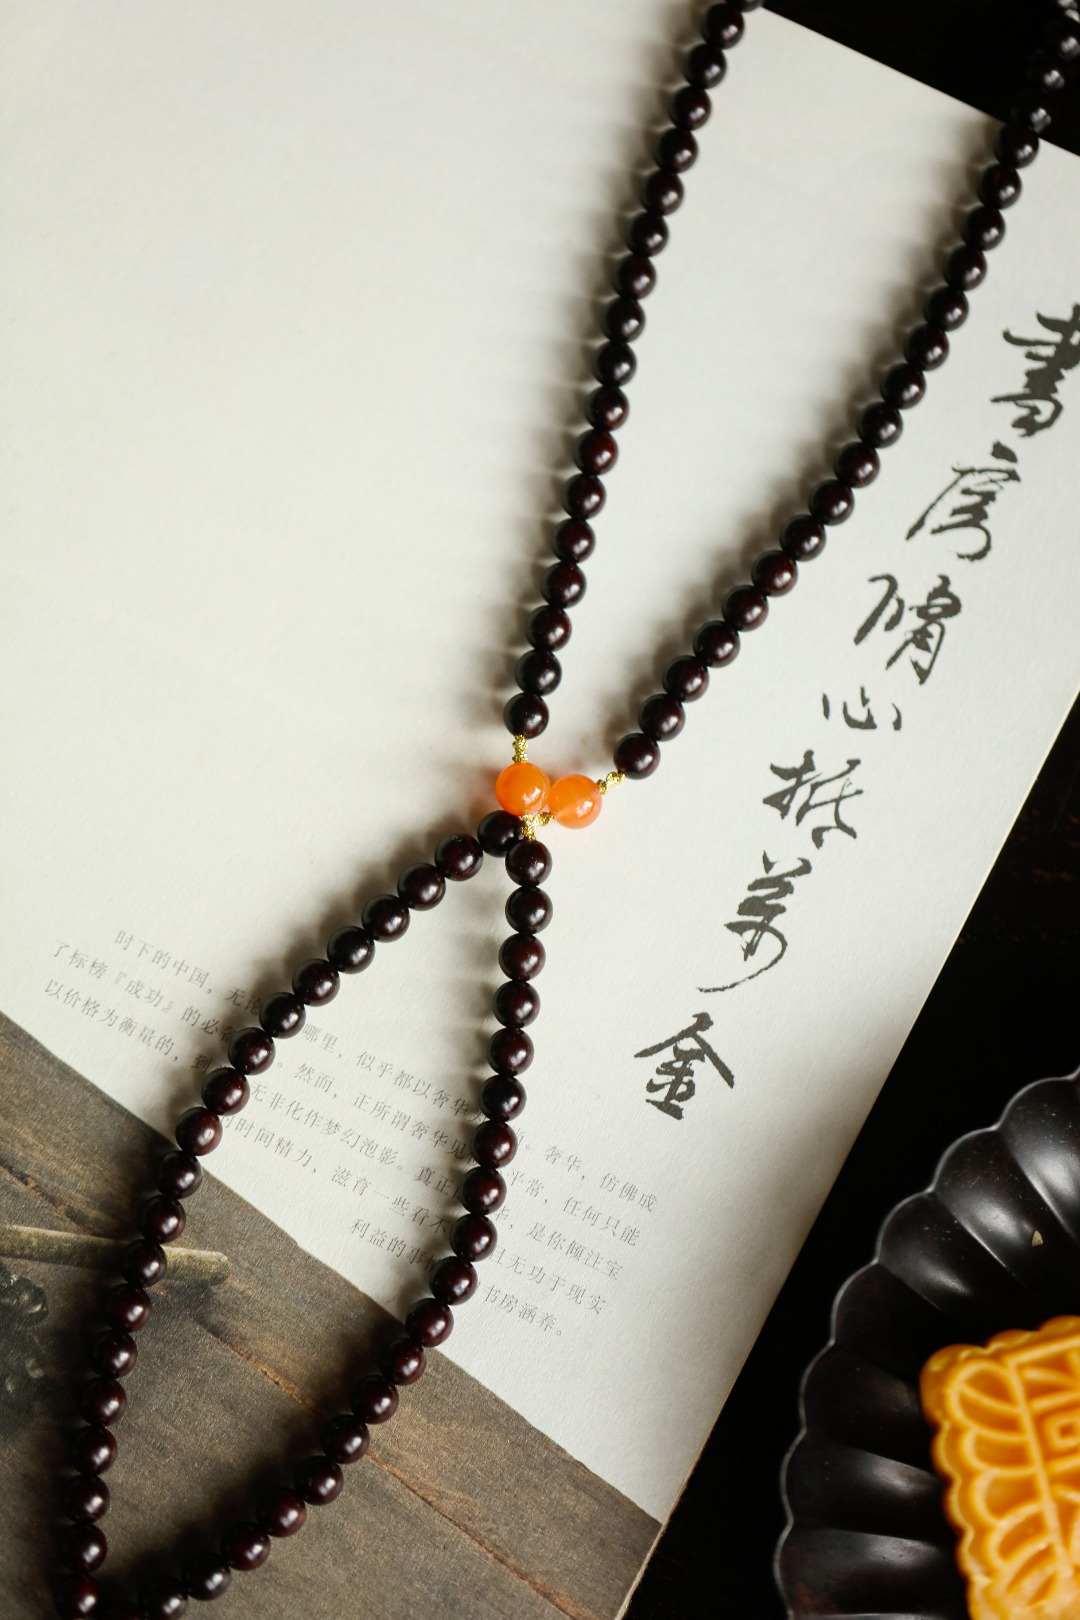 書房脩心抵萬金
时下的中国，无论哪里，似乎都以奢华尚。奢华，仿佛成
了标榜『成功』的必。然而，正所谓奢华见平常，任何只能
以价格为衡量的，到无非化作梦幻泡影。真正华，是你倾注宝
时间精力，滋育一些看不且无功于现实
利益的事书房涵养。